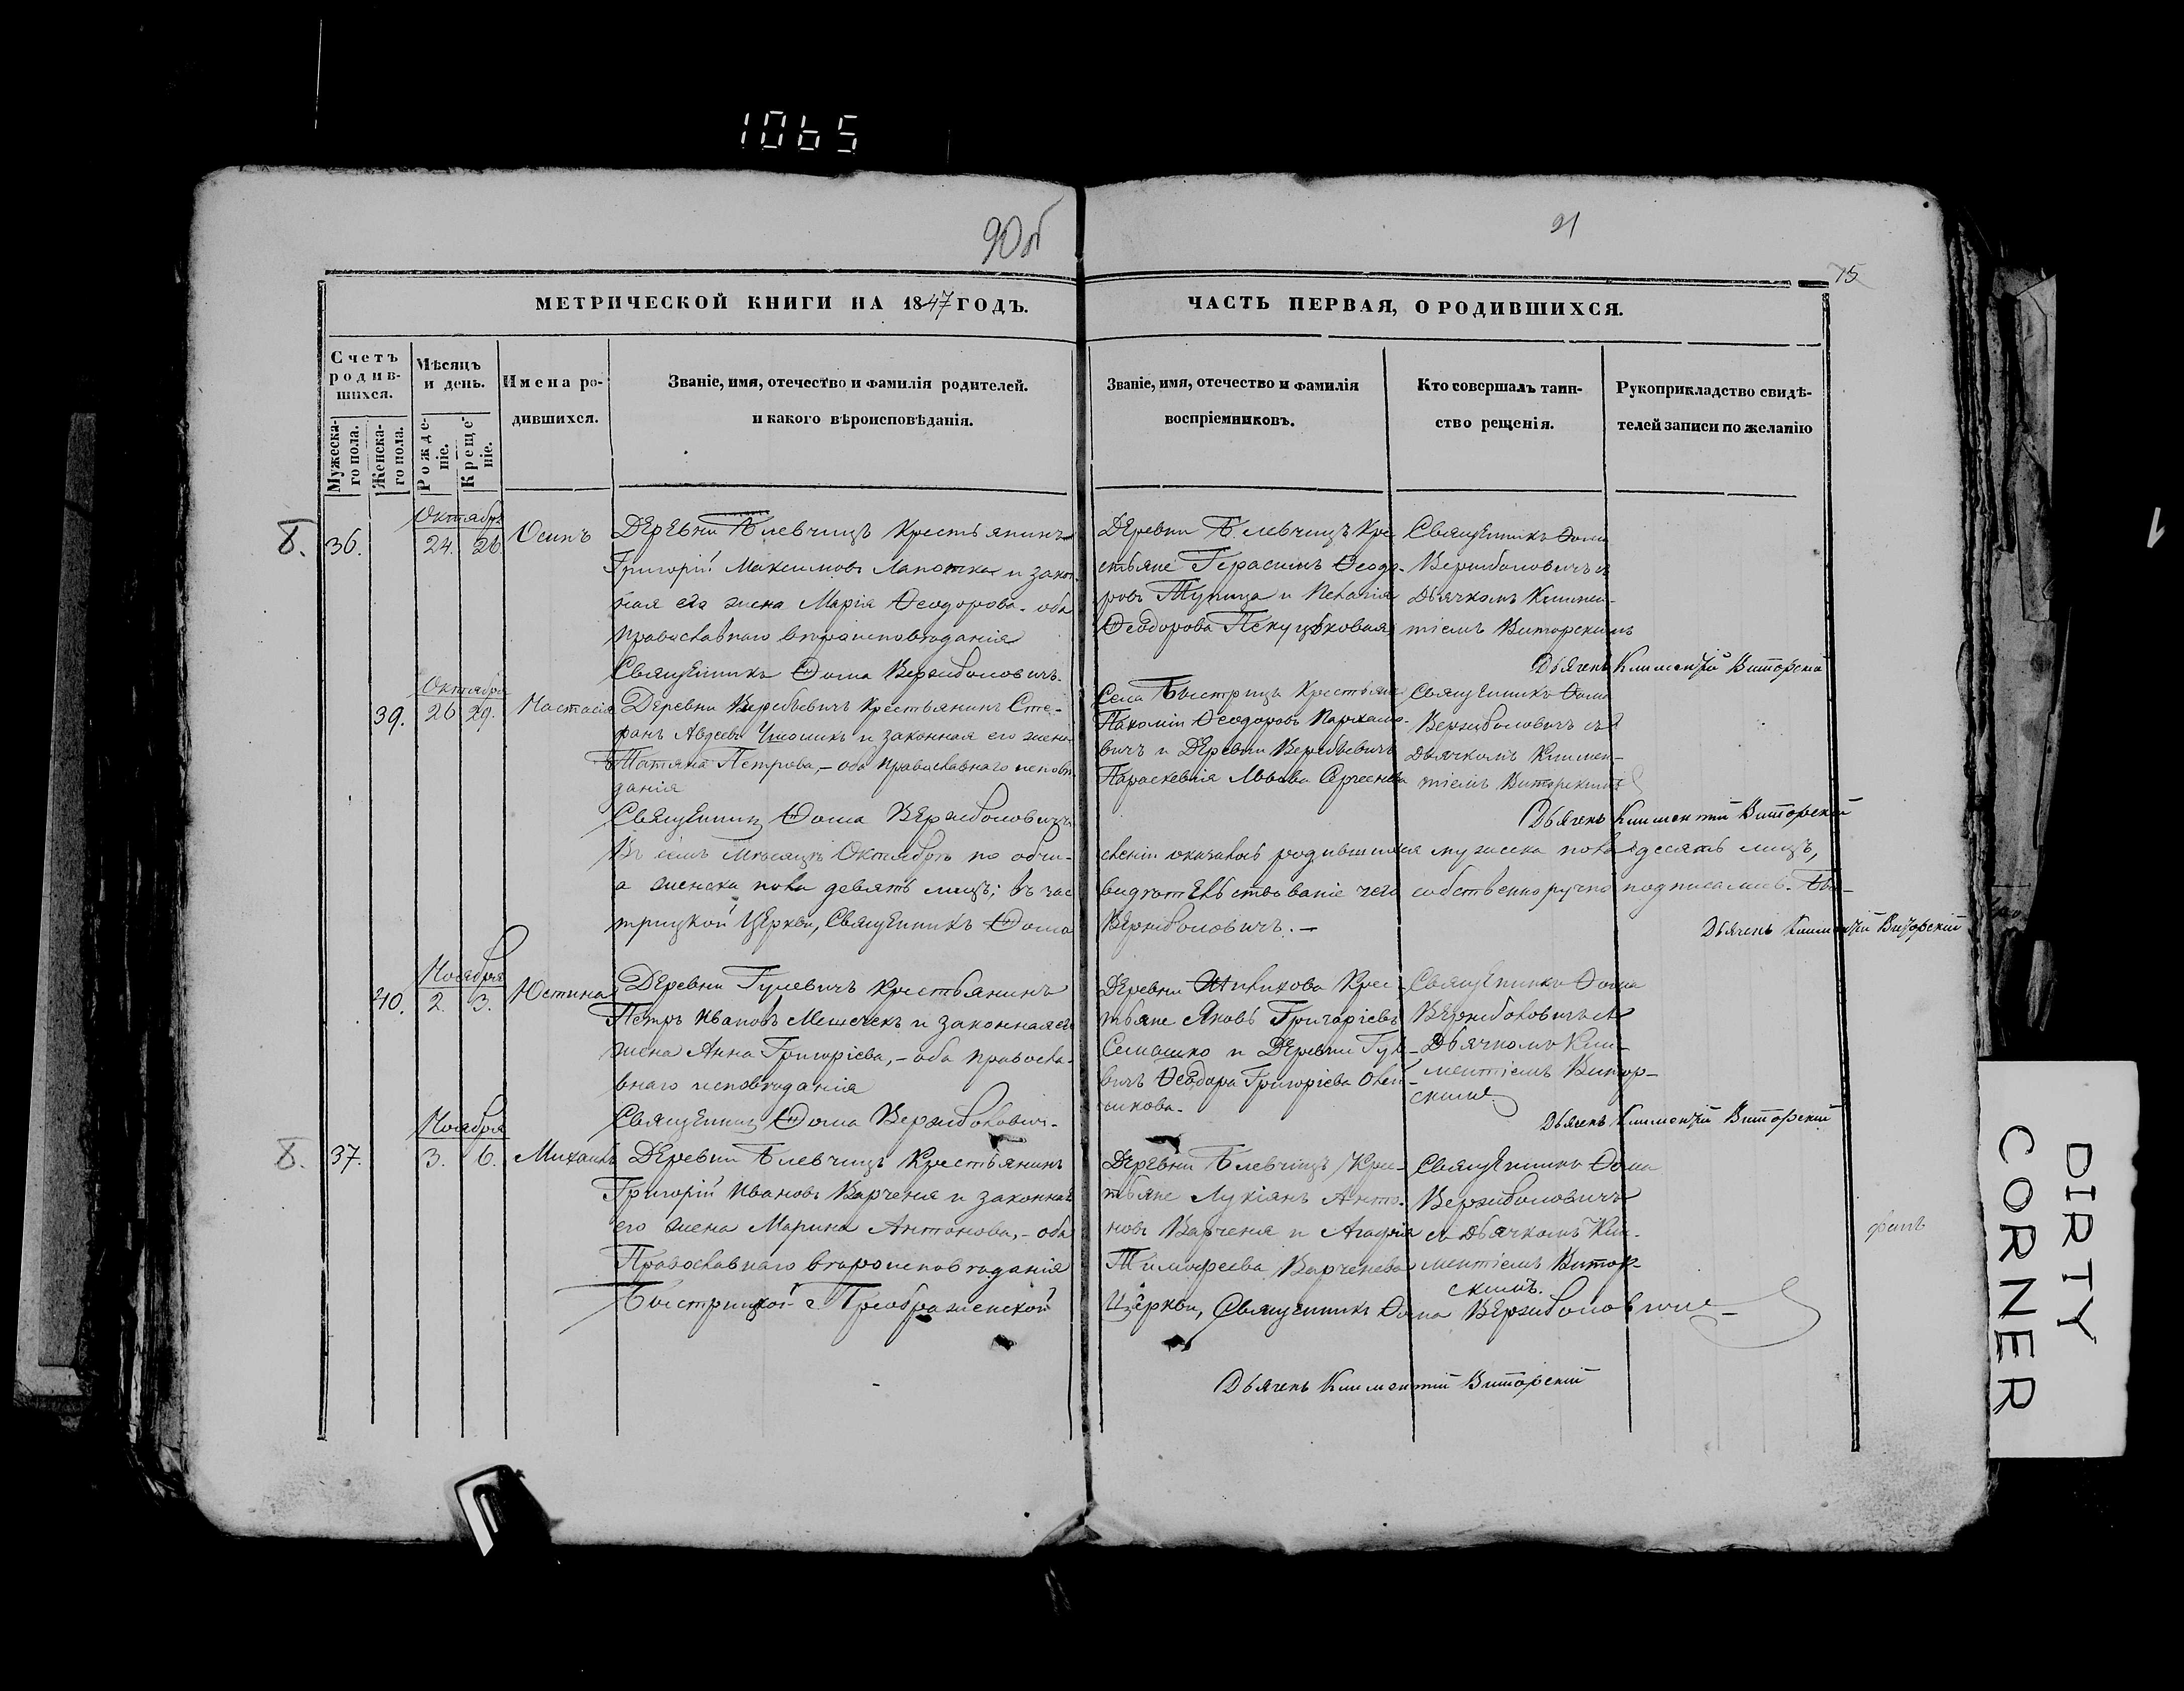 1065
90об
91
75
МЕТРИЧЕСКОЙ КНИГИ НА 1847 ГОДЪ.
ЧАСТЬ ПЕРВАЯ, О РОДИВШИХСЯ.
Счетъ родив-шихся.
Мужеска-го пола.
Женска-го пола.
Мѣсяцъ и день.
Рожде-ніе.
Креще-ніе.
Имена ро-дившихся.
Званіе, имя, отечество и фамилія родителей.
и какого вѣроисповѣданія.
Званіе, имя, отечество и фамилія
воспріемниковъ.
Кто совершалъ таин-
ство рещенія.
Рукоприкладство свидѣ-
телей записи по желанію
8. 36.
Октября
24. 26
Осипъ
Деревни Блевчицъ Крестьянинъ
Григорій Максимовъ Лапотка и закон
ная его жена Марія Ѳеодорова. оба
православнаго вѣроисповѣданія
Священникъ Ѳома Вержболовичъ.
Деревни Блевчицъ Кре
стьяне Герасимъ Ѳеодо-
ровъ Тупица и
Ѳеодорова
Священникъ Ѳома
Вержболовичъ съ
Дьячкомъ Климен-
тіемъ Виторскимъ
Дьячекъ Климентій Виторскій
39.
Октября
26 29.
Настасія
Деревни Вересбьевичъ Крестьянинъ Сте-
фанъ Авдеевъ и законная его жена
Татіяна Петрова,- оба Православнаго исповѣ
данія
Священникъ Ѳома Вержболовичъ
Села Быстрицъ Крестьяне
Пахомій Ѳеодоровъ Пархамо-
вичъ и Деревни
Параскевія
Священникъ Ѳома
Вержболовичъ съ
Дьячкомъ Климен-
тіемъ Виторскимъ
Дьячекъ Климентій Виторскій
Въ семъ Мѣсяцѣ Октябрѣ по обчи-
сленіи оказалось родившихся мужеска пола десять лицъ,
а женска пола девять лицъ; въ час
видѣтельствованіе чего собственноручно подписались. Бы-
трицкой Церкви, Священникъ Ѳома
Вержболовичъ.-
Дьячекъ Климентій Виторскій
40.
Ноября
2. 3.
Юстина
Деревни Гулевичъ Крестьянинъ
Петръ Ивановъ Мешечекъ и законная его
жена Анна Григоріева,- оба правосла-
внаго исповѣданія
Священникъ Ѳома Вержболовичъ.
Деревни Крес-
тьяне Яковъ Григоріевъ
Семашко и Деревни Гуле-
вичъ Ѳеодора Григоріева
Священникъ Ѳома
Вержболовичъ съ
Дьячкомъ Кли-
ментіемъ Витор-
скимъ
Дьячекъ Климентій Виторскій
8. 37.
Ноября
3. 6.
Михаилъ
Деревни Блевчицъ Крестьянинъ
Григорій Ивановъ Варченя и законная
его жена Марина Антонова,- оба
Православнаго вѣроисповѣданія
Деревни Блевчицъ Крес-
тьяне Лукіянъ Анто-
новъ Варченя и Агафія
Тимофеева Варченева
Священникъ Ѳома
Вержболовичъ
съ Дьячкомъ Кли-
ментіемъ Витор-
скимъ.
Быстрицкой Преображенской
Церкви, Священникъ Ѳома Вержболовичъ
Дьячекъ Климентій Виторскій
фанъ
DIRTY
CORNER
1